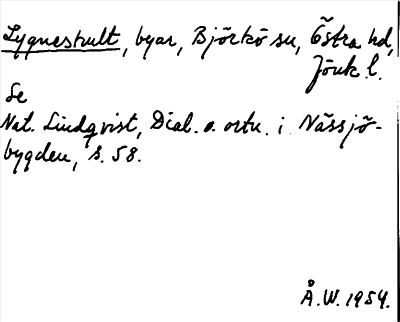 Lygnestult, byar, Björkö sn, Östra hd,
Jönk. l.
Se
Nat. Lindqvist, Dial. o. ortn. i Nässjö-
bygden, s. 58.
Å.W. 1954.